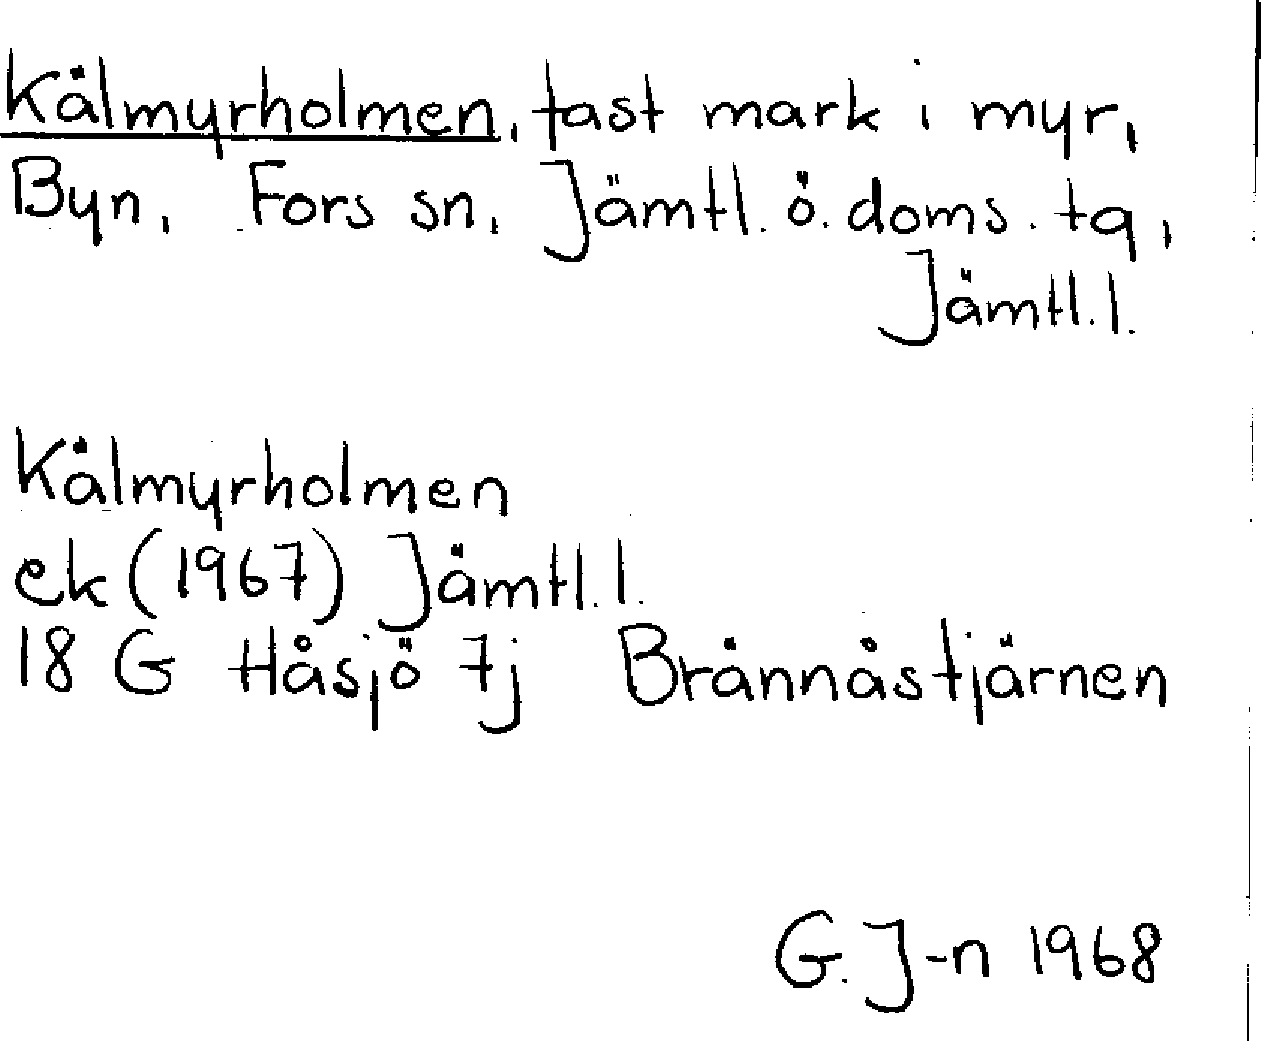 Kälmyrholmen, fast mark i myr,
Byn, Fors sn, Jämtl. ö. doms. tg,
Jämtl. l.
Kälmyrholmen
ek (1967) Jämtl. l.
18 G Håsjö 7j Brännåstjärnen
G. J-n 1968